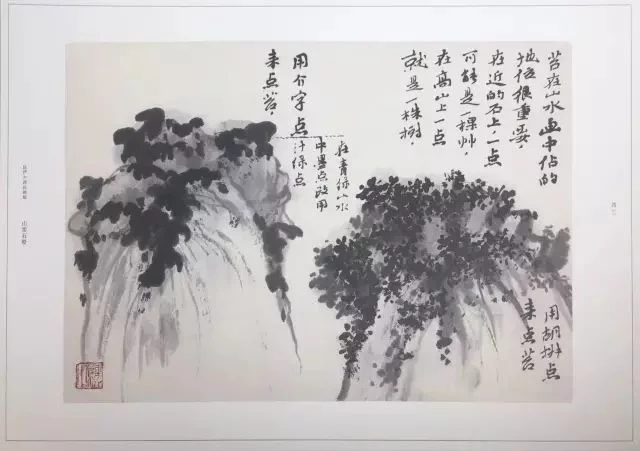 苔在山水画中佔的
地位很重要,
在近的石上,一点
可能是一棵艸,
在高山上一点
就是一株樹,
用介字点
来点苔,
在青绿山水
中墨点改用
汁绿点
用胡椒点
来点苔